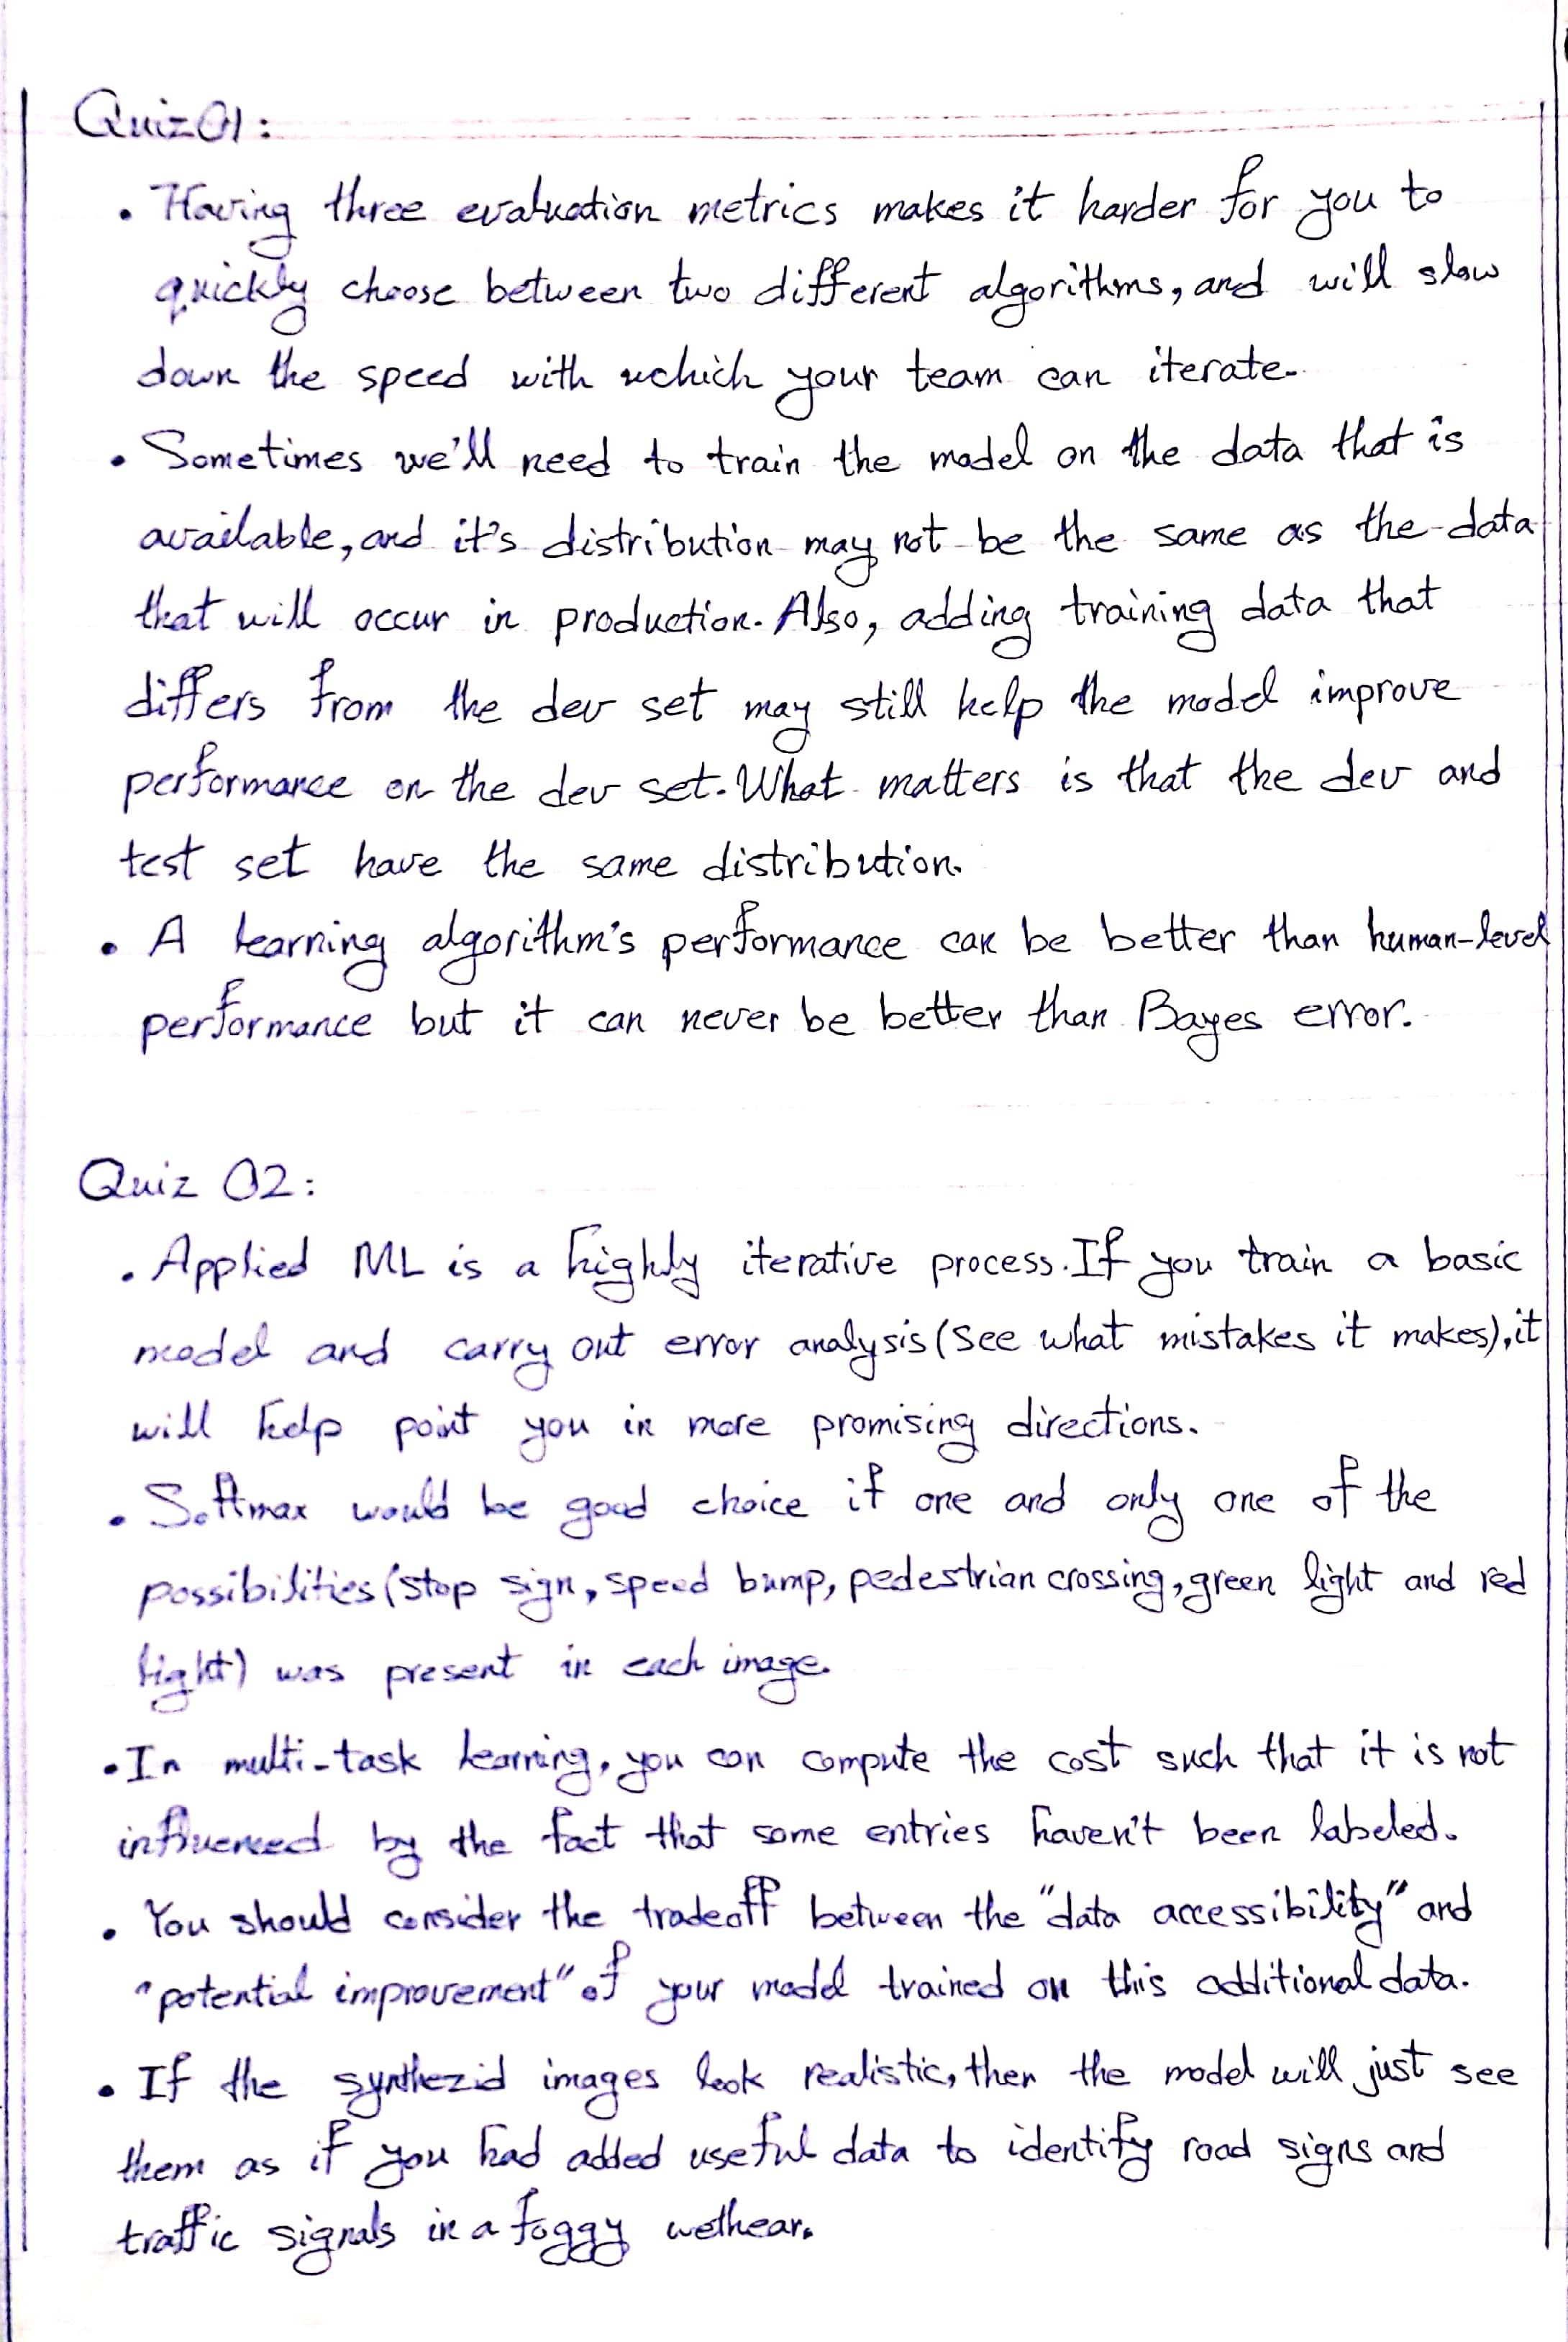 Quiz 01:
• Having three evaluation metrics makes it harder for you to
quickly choose between two different algorithms, and will slow
down the speed with which your team can iterate.
• Sometimes we'll need to train the model on the data that is
available, and it's distribution may not be the same as the data
that will occur in production. Also, adding training data that
differs from the dev set may still help the model improve
performance on the dev set. What matters is that the dev and
test set have the same distribution.
• A learning algorithm's performance can be better than human-level
performance but it can never be better than Bayes error.
Quiz 02:
• Applied ML is a highly iterative process. If you train a basic
model and carry out error analysis (see what mistakes it makes), it
will help point you in more promising directions.
• Softmax would be good choice if one and only one of the
possibilities (stop sign, speed bump, pedestrian crossing, green light and red
light) was present in each image.
• In multi-task learning, you can compute the cost such that it is not
influenced by the fact that some entries haven't been labeled.
• You should consider the tradeoff between the "data accessibility" and
"potential improvement" of your model trained on this additional data.
• If the synthezid images look realistic, then the model will just see
them as if you had added useful data to identify road signs and
traffic signals in a foggy wethear.